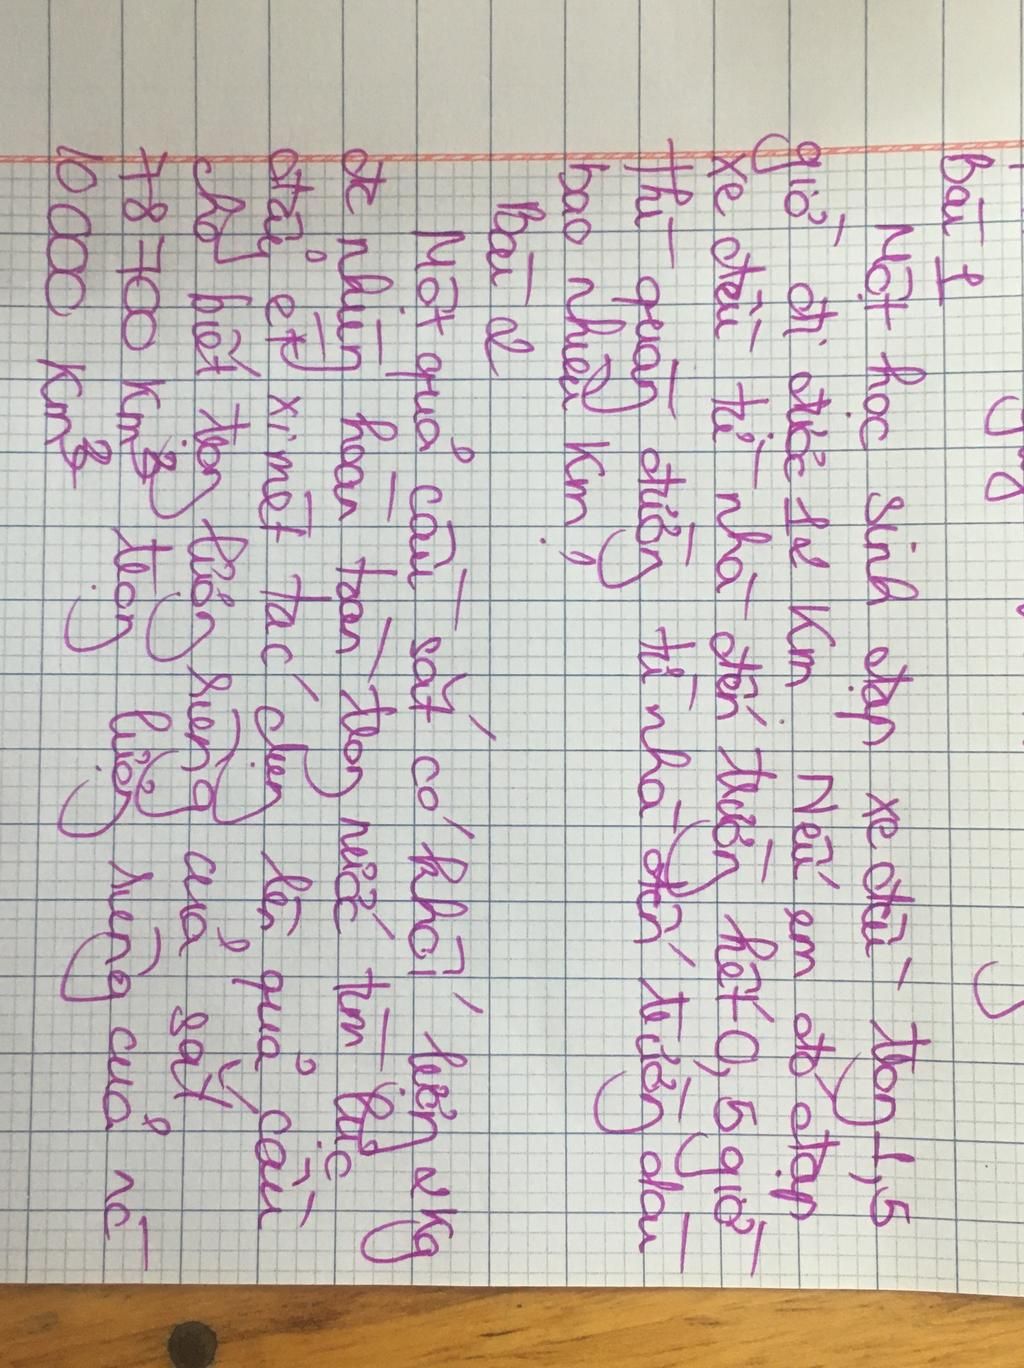 Bài 1
Một học sinh đạp xe đều trong 1,5
giờ đi được 12 Km. Nếu em đó đạp
xe đều từ nhà đến trường hết 0,5 giờ
thì quãn đường từ nhà đến trường dài
bao nhiêu Km?
Bài 2
Một quả cầu sắt có khối lượn 2 Kg
đc nhún hoàn toàn trong nước tìm lực
đẩy ét xi mét tác dụn lên quả cầu
cho biết trọn lượn riêng của sắt
78 700 Km3 trọng lượng riêng của nc
10 000 Km3